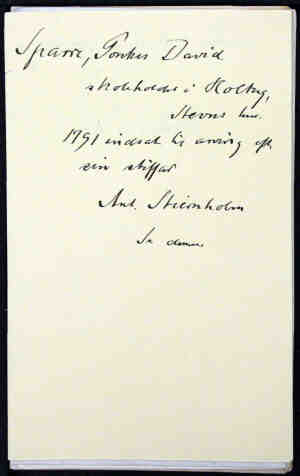 Sparre, Pontus David
skoleholder i Holtug,
Stevns hrd.
1791 indsat til arving eft.
sin stiffar
Ant. Stiernholm
Se denne